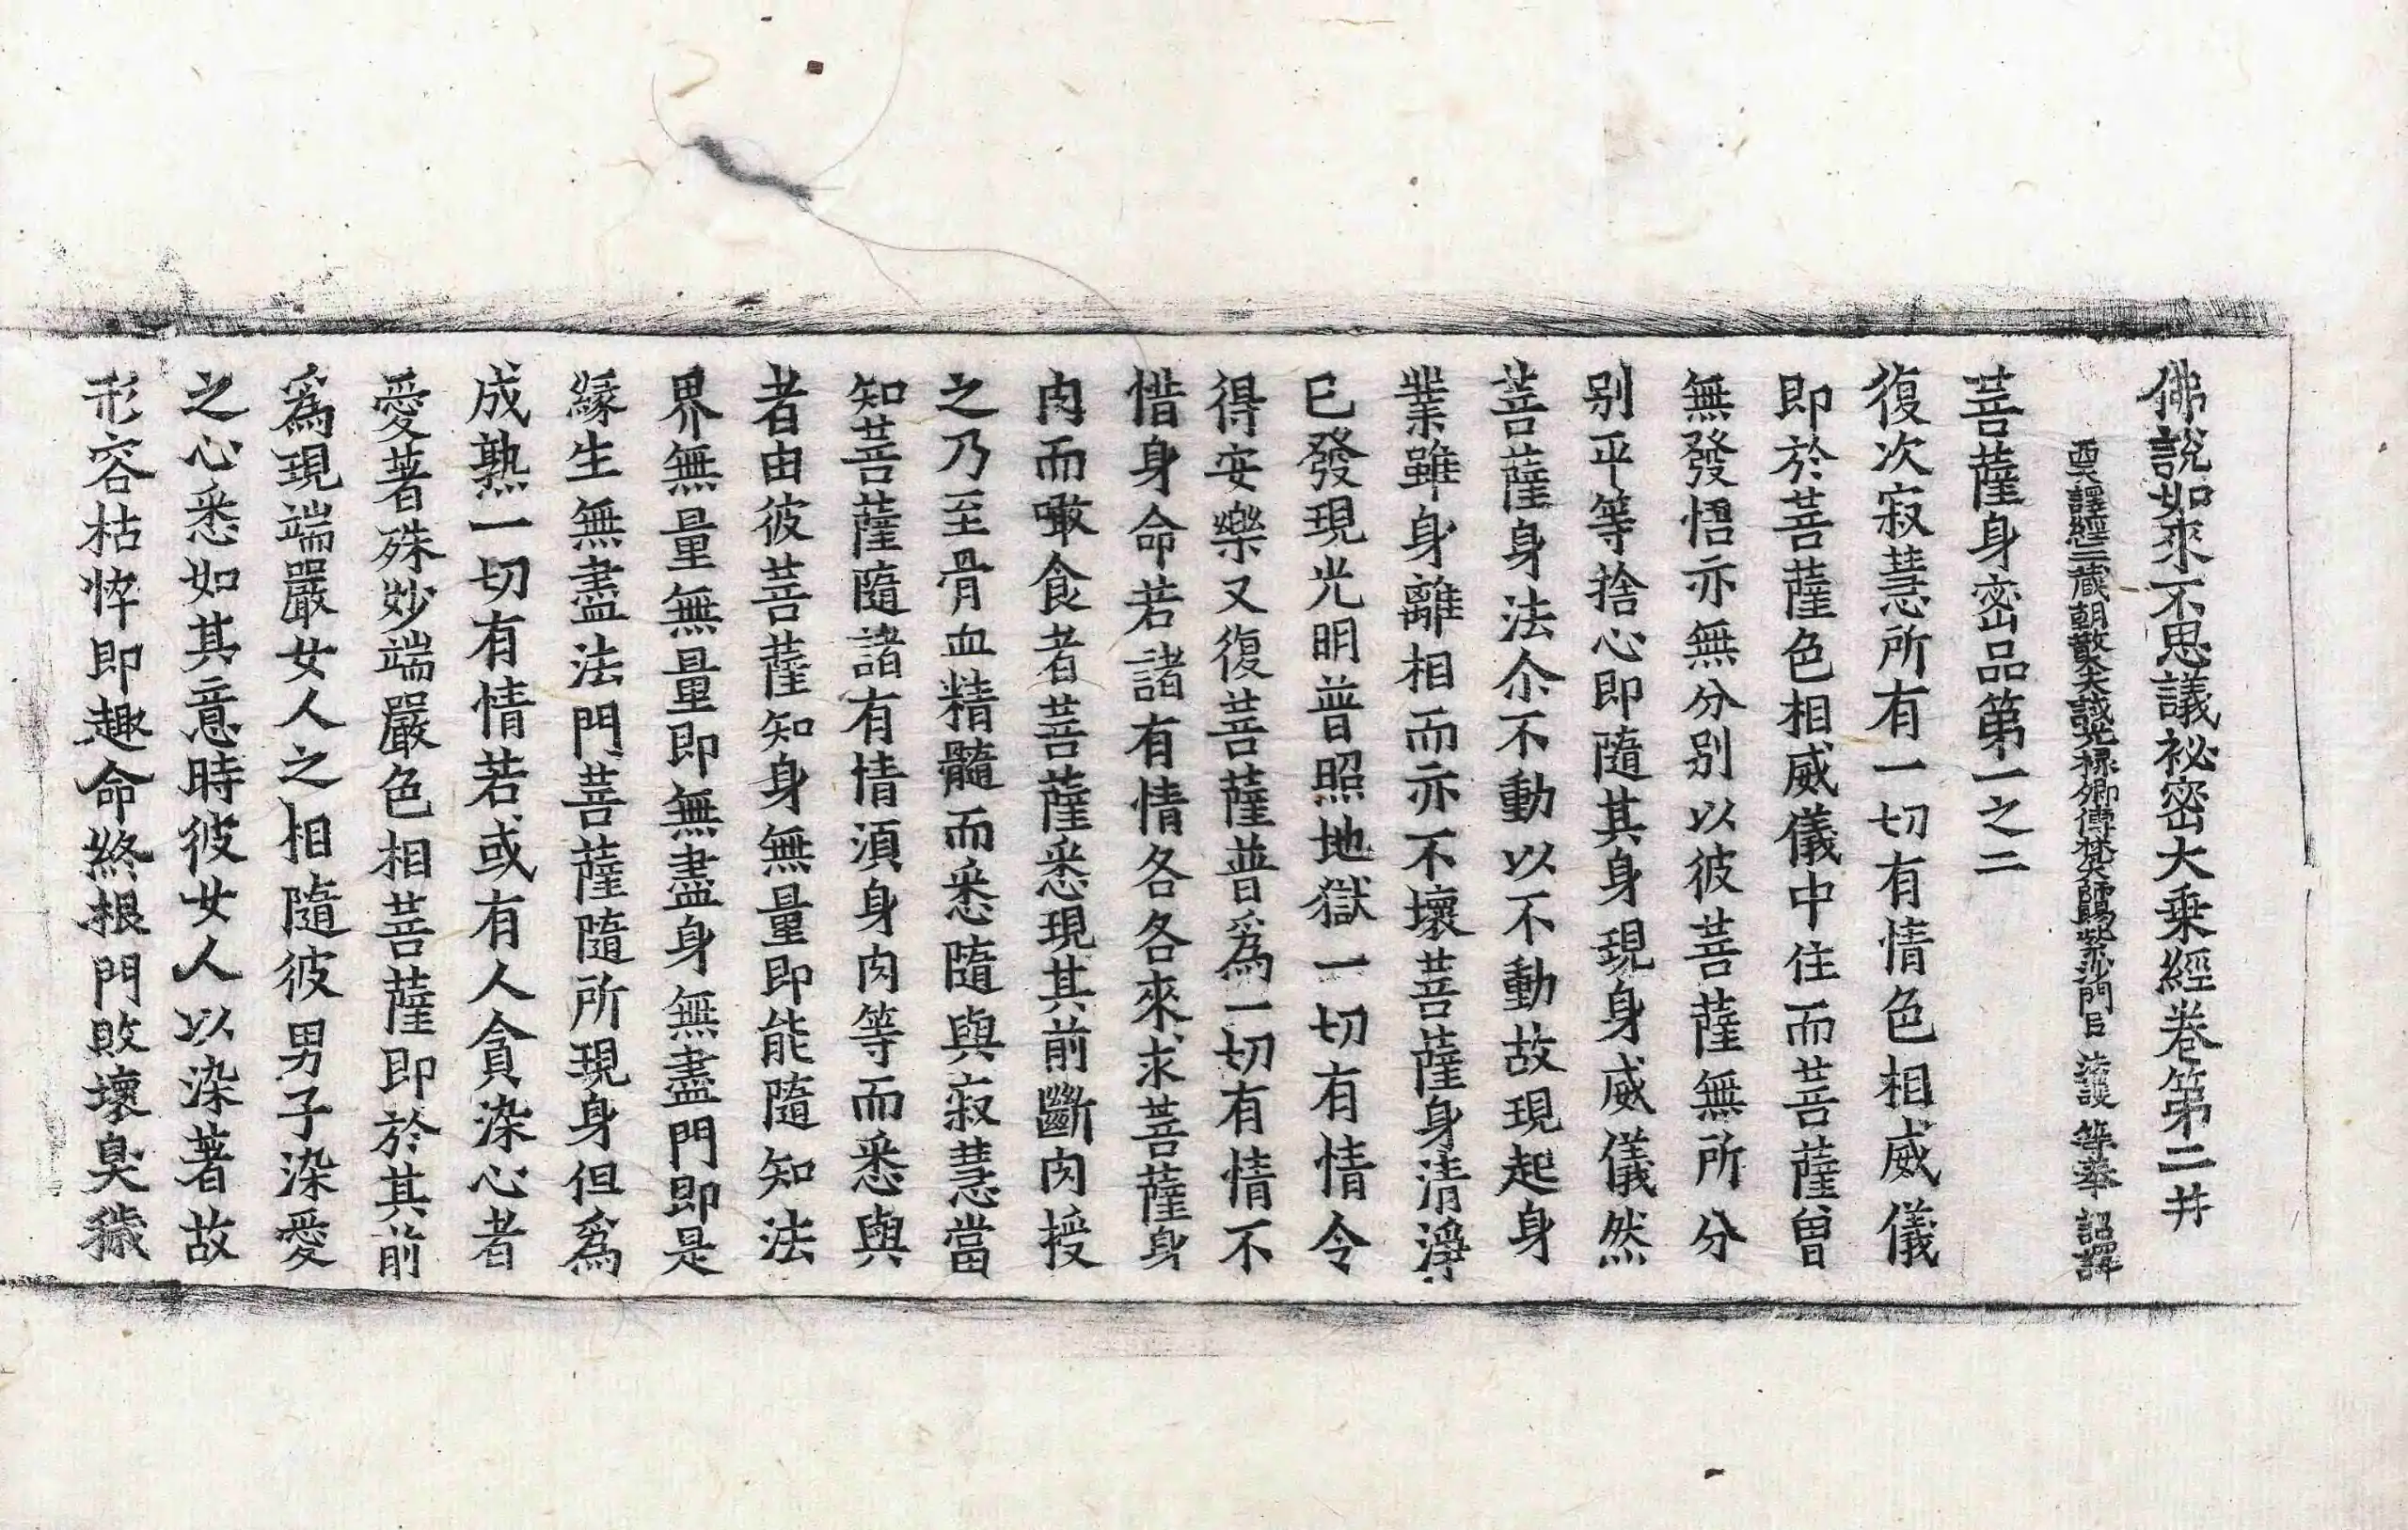 佛說如來不思議祕密大乘經卷第二 井
西天譯經三藏朝散大夫試光祿卿傳梵大師賜紫沙門臣 法護 等奉 詔譯
菩薩身密品第一之二
復次寂慧所有一切有情色相威儀
即於菩薩色相威儀中住而菩薩曾
無發悟亦無分別以彼菩薩無所分
别平等捨心即隨其身現身威儀然
菩薩身法尒不動以不動故現起身
業雖身離相而亦不壞菩薩身清淨
已發現光明普照地獄一切有情令
得安樂又復菩薩普爲一切有情不
惜身命若諸有情各各來求菩薩身
肉而噉食者菩薩悉現其前斷肉授
之乃至骨血精髓而悉隨與寂慧當
知菩薩隨諸有情須身肉等而悉與
者由彼菩薩知身無量即能隨知法
界無量無量即無盡身無盡門即是
緣生無盡法門菩薩隨所現身但爲
成熟一切有情若或有人貪染心者
愛著殊妙端嚴色相菩薩即於其前
爲現端嚴女人之相隨彼男子染愛
之心悉如其意時彼女人以染著故
形容枯悴即趣命終根門敗壞臭穢